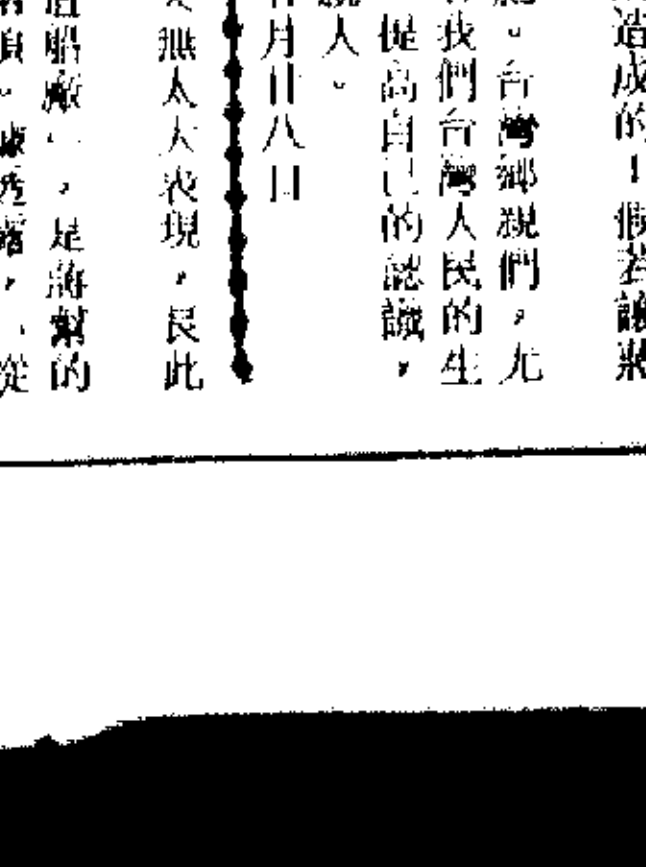 造成的!假若讓蔣
。台灣鄉親們,尤
我們台灣人民的生
提高自己的認識,
人。
月廿八日
無太大表現,長此
造船廠、,是蔣幫的
。康透露,、從